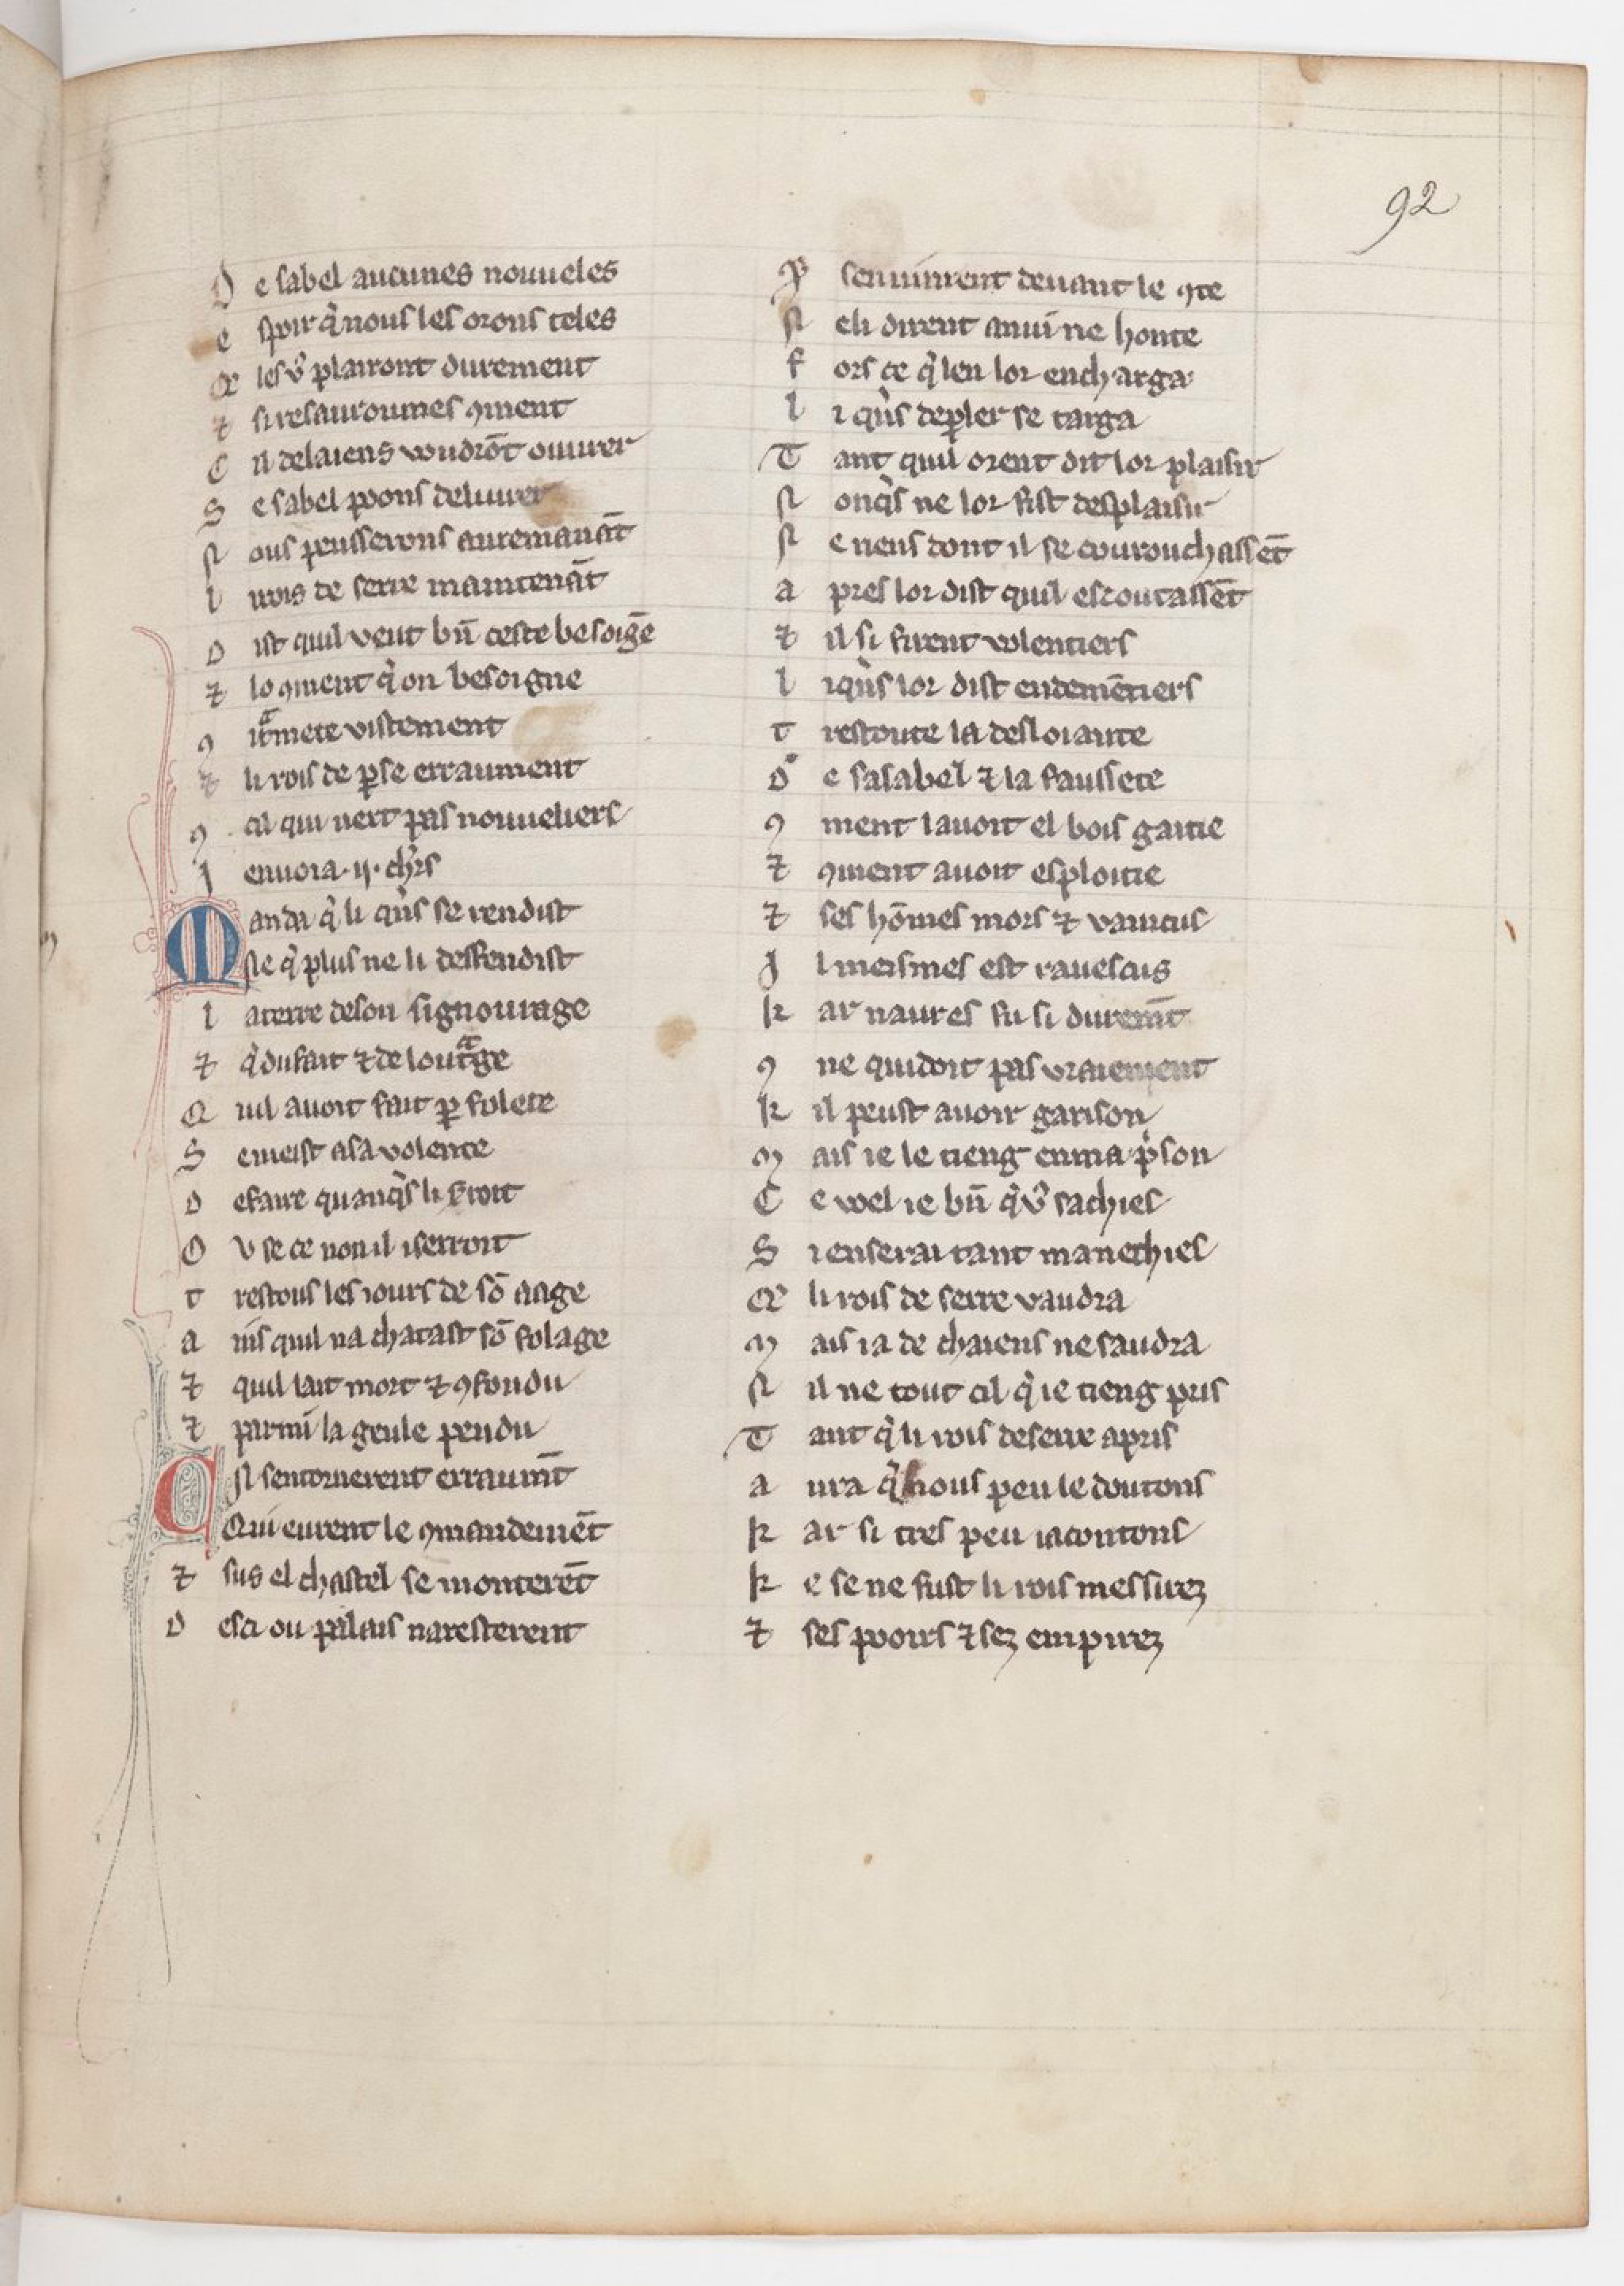 92
D e sabel aucunes nouueles
e spoir q̾ nous les orons teles
Q̃ les v̾ plairont durement
⁊ si resauroumes ꝯment
C il delaiens voudrōt ouurer
S e sabel poons deliurer
N ous penserons au remanāt
l i rois de serre maintenāt
D ist quil veut bn̄ ceste besoigē
⁊ lo ꝯment q̾ on besoigne
ꝯ itͣmete vistement
⁊ li rois de ꝑse erraument
ꝯ cil qui nert pas nouueliers
J enuoia .ij. chr̄s
M anda q̾ li qn̾s se rendist
Ne q̾ plus ne li deffendist
l aterre deson signourage
⁊ q̾ dufait ⁊ de loutͣge
Q uil auoit fait ꝑ folete
S emeist asa volente
D efaire quanq̾s li ꝟroit
O v se ce non il iserroit
t restous les iours de sō aage
a ins quil na chatast sō folage
⁊ quil lait mort ⁊ ꝯfondu
⁊ parmi la geule pendu
C Il sentornerent erraumt̄
Qui eurent le ꝯmandemēt
⁊ sus el chastel se monterēt
D esci ou palais naresterent
P̃ senuinrent deuant le ꝯte
N eli dirent anui ne honte
f ors ce q̾ len lor encharga
l i qn̾s deꝑler se targa
T ant quil orent dit lor plaisir
N onq̾s ne lor fist desplaisir
N e riens dont il se courouchassēt
a pres lor dist quil escoutassēt
⁊ il si firent volentiers
l iqn̾s lor dist endemētiers
t restoute la desloiaute
D e sasabel ⁊ la faussete
ꝯ ment lauoit el bois gaitie
⁊ ꝯment auoit esploitie
⁊ ses hōmes mors ⁊ vaincus
J l meismes est rauescus
k ar naures fu si duremt̄
ꝯ ne quidoit pas vraiement
k il peust auoir garison
M ais ie le tieng enma p̾son
C e voel ie bn̄ q̾ v̾ sachies
S ienserai tant manechies
Q̃ li rois de serre vaudra
M ais ia de chaiens ne saudra
N il ne tout cil q̾ ie tieng pris
T ant q̾ li rois deserre apris
a ura q̾ nous peu le doutons
k ar si tres peu iacontons
k e se ne fust li rois messirez
⁊ ses pooirs ⁊ sez empirez